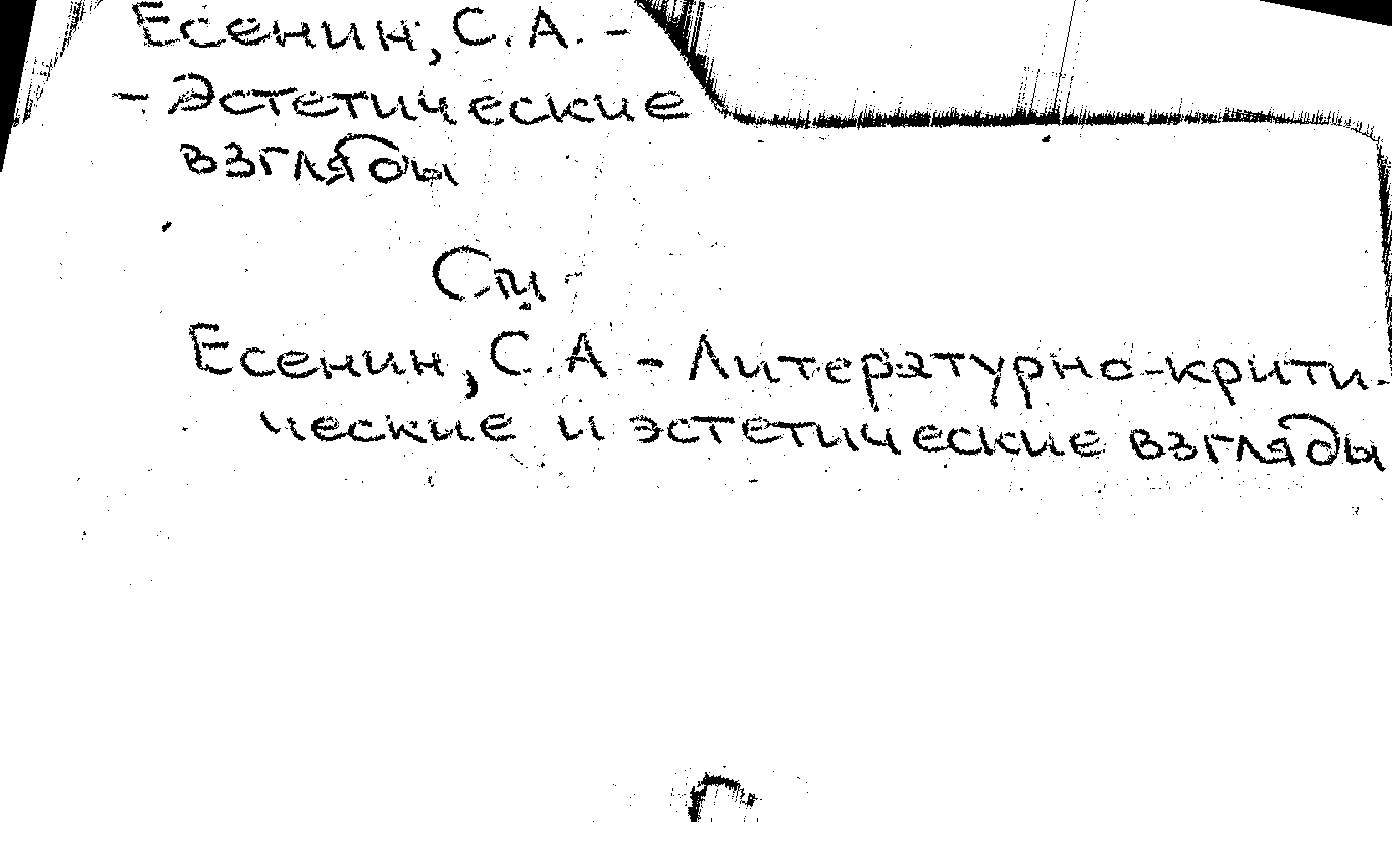 Есенин, С. А. -
- Эстетические
взгляды
См.
Есенин, С. А - Литературно-крити-
ческие и эстетические взгляды